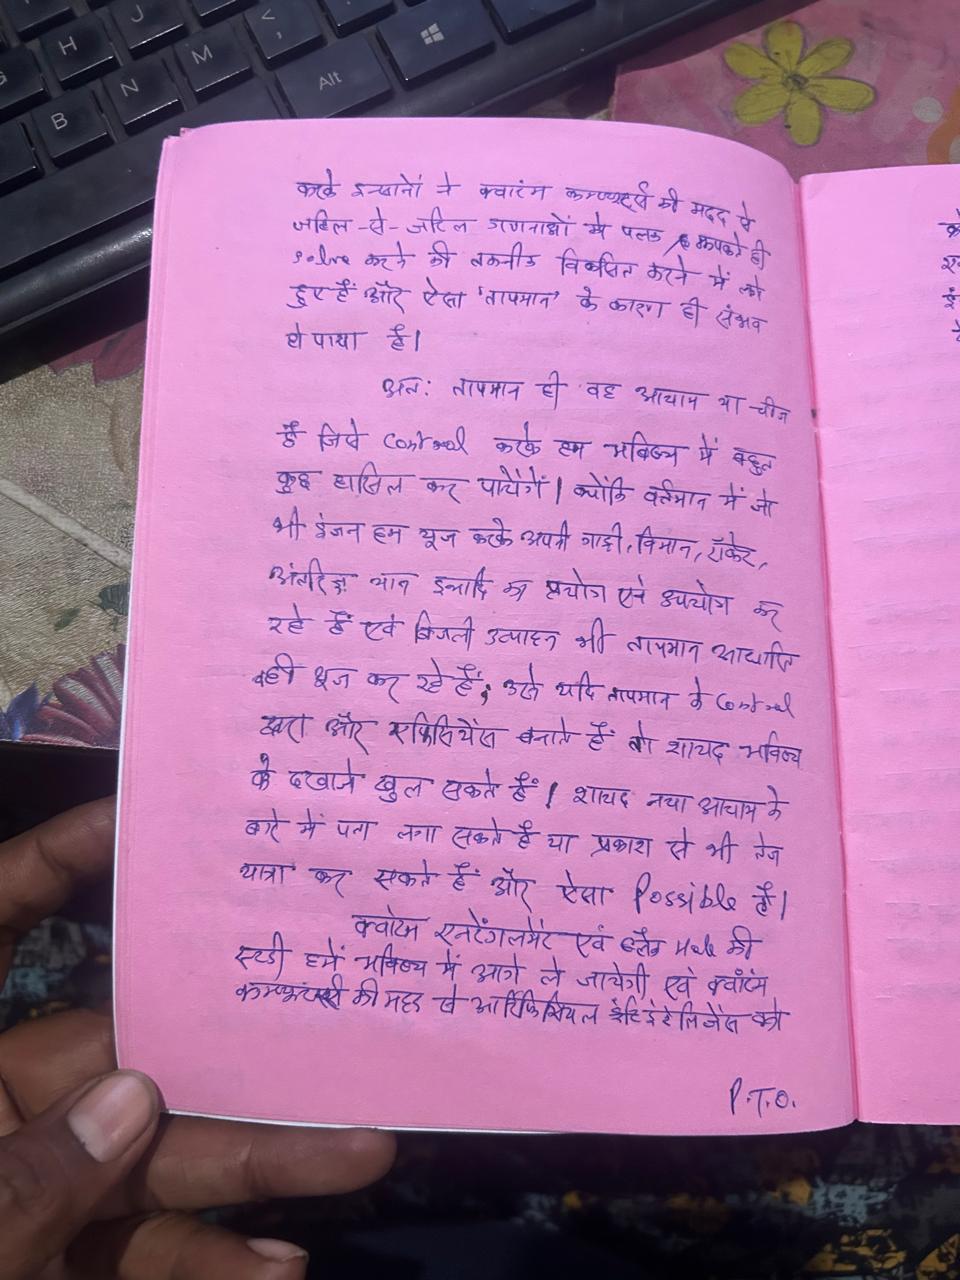 G
H
J
B
N
M
<
,
Alt
करके इन्सानों ने क्वांटम कम्प्यूटर्स की मदद से
जटिल-से-जटिल गणनाओं में पलक झपकते ही
solve करने की तकनीक विकसित करने में लगे
हुए हैं और ऐसा 'तापमान' के कारण ही संभव
हो पाया है।
अतः तापमान ही वह आयाम या चीज
है जिसे Control करके हम भविष्य में बहुत
कुछ हासिल कर पायेंगें। क्योंकि वर्तमान में जो
भी इंजन हम यूज करके अपनी गाड़ी, विमान, रॉकेट,
अंतरिक्ष यान इत्यादि का प्रयोग एवं उपयोग कर
रहे हैं एवं बिजली उत्पादन भी तापमान आधारित
वही यूज कर रहे हैं; उसे यदि तापमान के Control
द्वारा और एफिसियेंस बनाते हैं तो शायद भविष्य
के दरवाजे खुल सकते हैं। शायद नया आयाम के
बारे में पता लगा सकते हैं या प्रकाश से भी तेज
यात्रा कर सकते हैं और ऐसा Possible है।
क्वांटम एनटैंगलमेंट एवं ब्लैक Hole की
स्टडी हमें भविष्य में आगे ले जायेगी एवं क्वांटम
कम्प्यूटर्स की मदद से आर्टिफिसियल इंटेलिजेंस को
P.T.O.